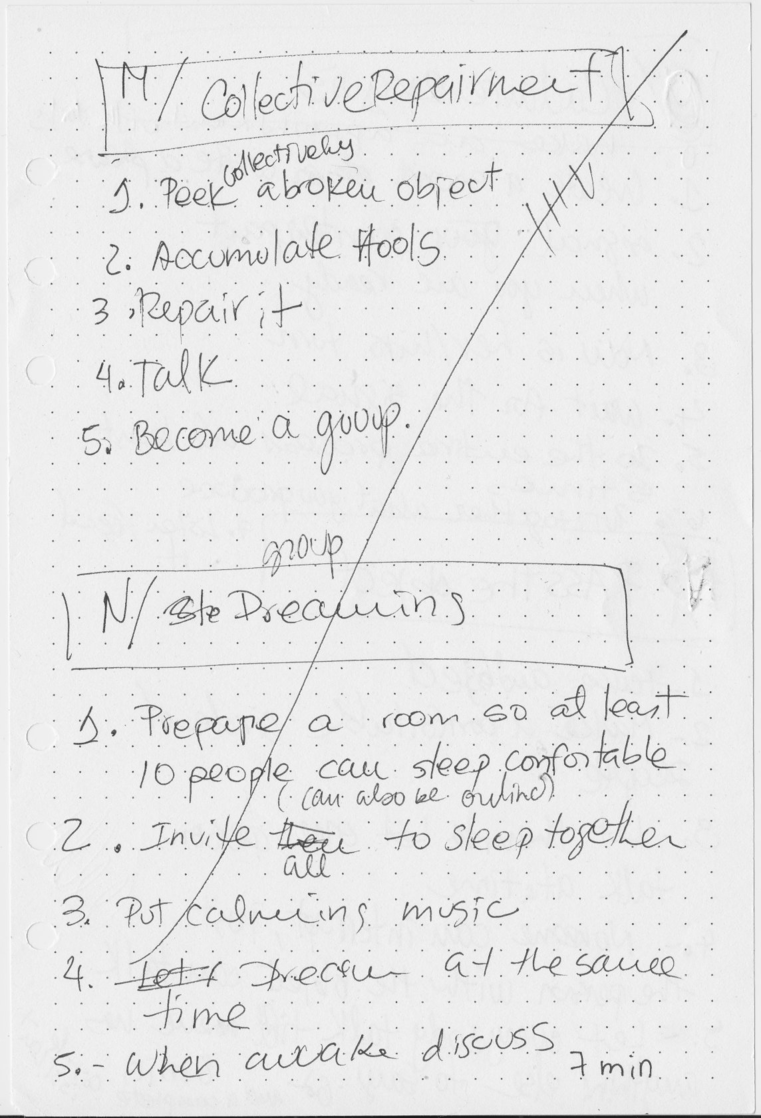 M/ Collective Repairment
collectively
1. Peek a broken object
2. Accumulate tools
3. Repair it
4. Talk
5. Become a gooup.
group
N/ Dreaming
1. Prepare a room so at least
10 people can sleep confortable
(can also be online)
2. Invite to sleep together
all
3. Put calming music
4. Let's Dream at the same
time
5.- When awake discuss
7 min